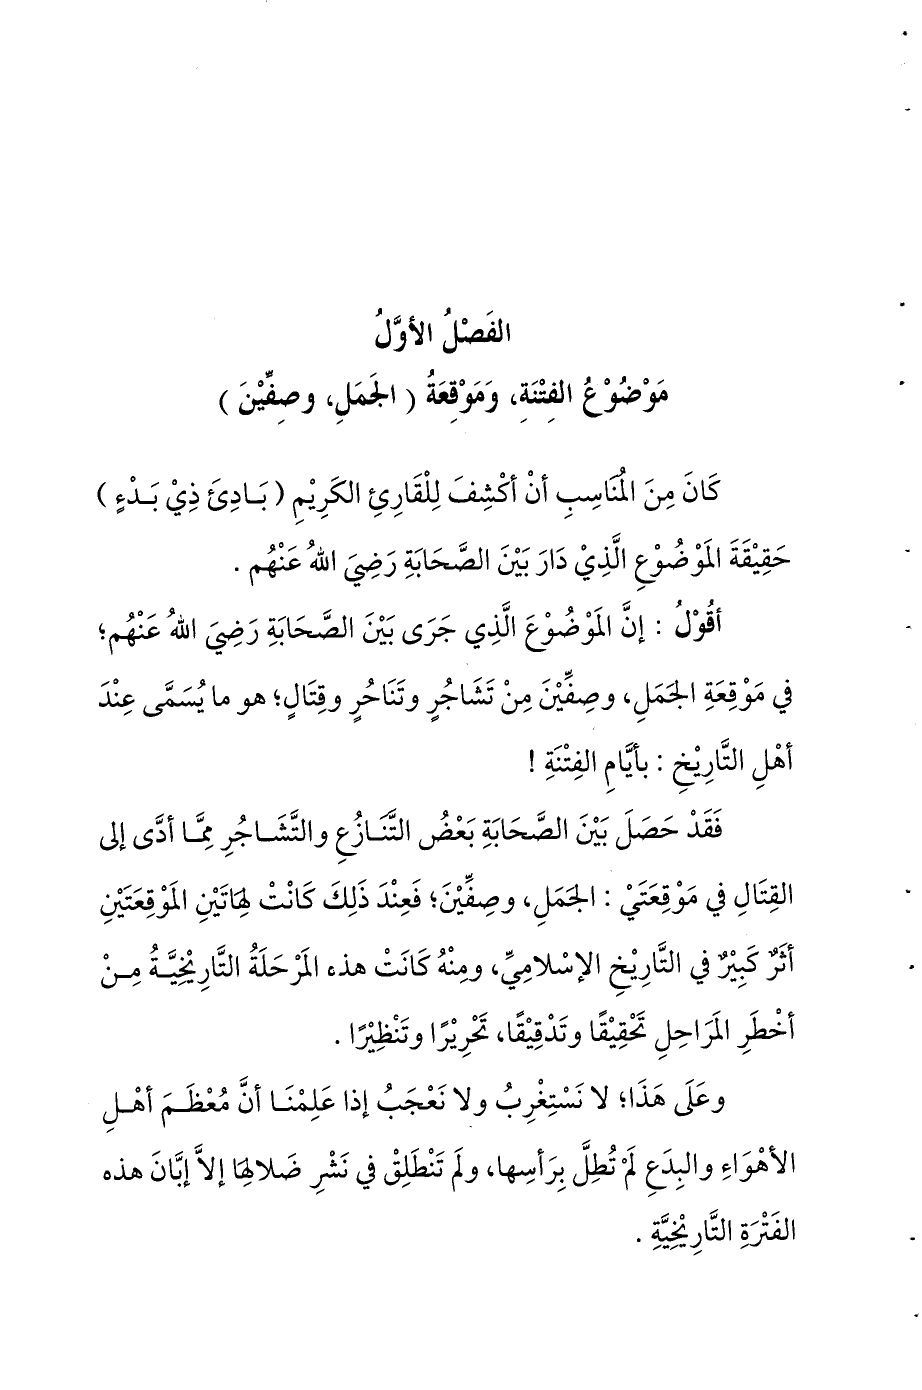 الفَصْلُ الأوَّلُ
مَوْضُوْعُ الفِتْنَةِ، وَمَوْقِعَةُ ( الجَمَلِ، وصِفِّيْنَ )
كَانَ مِنَ المُنَاسِبِ أنْ أكْشِفَ لِلْقَارِئِ الكَرِيْمِ ( بَادِئَ ذِيْ بَدْءٍ )
حَقِيْقَةَ المَوْضُوْعِ الَّذِيْ دَارَ بَيْنَ الصَّحَابَةِ رَضِيَ اللهُ عَنْهُم .
أقُوْلُ : إنَّ المَوْضُوْعَ الَّذِي جَرَى بَيْنَ الصَّحَابَةِ رَضِيَ اللهُ عَنْهُم؛
في مَوْقِعَةِ الجَمَلِ، وصِفِّيْنَ مِنْ تَشَاجُرٍ وتَنَاحُرٍ وقِتَالٍ؛ هو ما يُسَمَّى عِنْدَ
أهْلِ التَّارِيْخِ : بأيَّامِ الفِتْنَةِ !
فَقَدْ حَصَلَ بَيْنَ الصَّحَابَةِ بَعْضُ التَّنَازُعِ والتَّشَاجُرِ مِمَّا أدَّى إلى
القِتَالِ في مَوْقِعَتَيْ : الجَمَلِ، وصِفِّيْنَ؛ فَعِنْدَ ذَلِكَ كَانَتْ لِهَاتَيْنِ المَوْقِعَتَيْنِ
أثَرٌ كَبِيْرٌ في التَّارِيْخِ الإسْلامِيِّ، ومِنْهُ كَانَتْ هذه المَرْحَلَةُ التَّارِيْخِيَّةُ مِنْ
أخْطَرِ المَرَاحِلِ تَحْقِيْقًا وتَدْقِيْقًا، تَحْرِيْرًا وتَنْظِيْرًا .
وعَلَى هَذَا؛ لا نَسْتِغْرِبُ ولا نَعْجَبُ إذا عَلِمْنَا أنَّ مُعْظَمَ أهْلِ
الأهْوَاءِ والبِدَعِ لَمْ تُطِلَّ بِرَأسِها، ولَم تَنْطَلِقْ في نَشْرِ ضَلالِهَا إلاَّ إبَّانَ هذه
الفَتْرَةِ التَّارِيْخِيَّةِ .